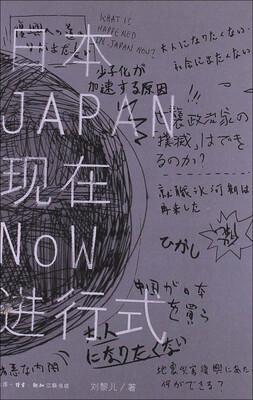 復興への道
WHAT IS
HAPPENED
IN JAPAN NOW?
大人になりたくない・
社会に出たくない
日本
少子化が
加速する原因
JAPAN
世襲政治家の
撲滅」はでき
るのか？
现在
就職氷河期は
再来した
NOW
ひがし
中国が日本
を買う
进行式
大人
になりたくない
地震災害復興にあた
何ができる？
刘黎儿／著
读书·新知 三联书店